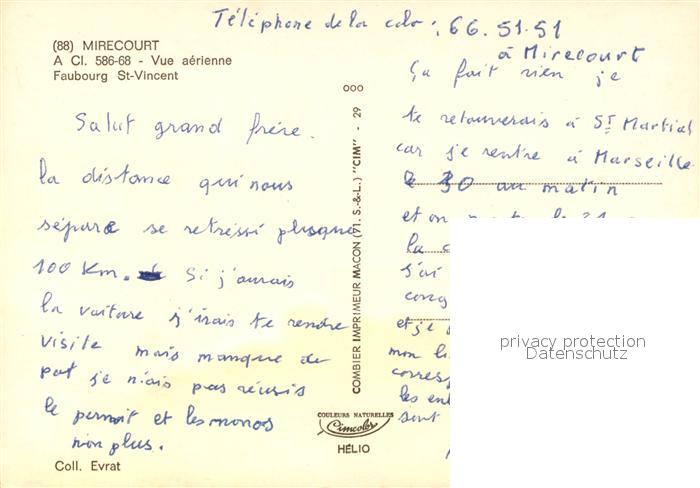 Téléphone de la colo : 66.51.51
à Mirecourt
(88) MIRECOURT
A Cl. 586-68 - Vue aérienne
Faubourg St-Vincent
Salut grand frère.
la distance qui nous
sépare se retressi plusque
100 Km. Si j'aurais
la voiture j'irais te rendre
visite mais manque de
pot je n'ais pas réusis
le permit et les monos
non plus.
Coll. Evrat
COMBIER IMPRIMEUR MACON (71. S.-&-L.) "CIM" - 29
COULEURS NATURELLES
Cimcolor
HÉLIO
Ça fait rien je
te retouverais à St Martial
car je rentre à Marseille
le 30 au matin
et on
la
s'ai
cong
et je
mon
corresp
les
sont
privacy protection
Datenschutz